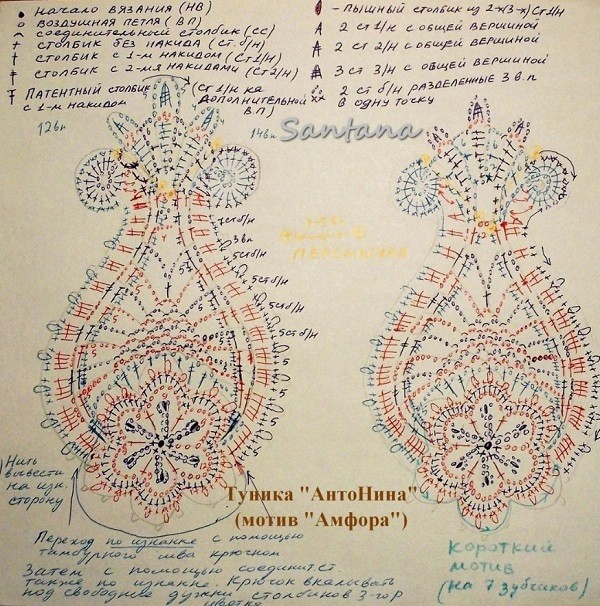 начало вязания (НВ)
воздушная петля (ВП)
соединительный столбик (сс)
столбик без накида (ст.б/н)
столбик с 1-м накидом (ст1/н)
столбик с 2-мя накидами (ст2/н)
Патентный столбик
с 1-м накидом
(ст 1/н на
дополнительной
в.п)
- пышный столбик из 2-х(3-х)ст1/н
2 ст 1/н с общей вершиной
2 ст 2/н с общей вершиной
3 ст 3/н с общей вершиной
2 ст б/н разделенные 3 в.п
в одну точку
12вп
14вп
Santana
7стб/н
3вп
5стб/н
5стб/н
5стб/н
5стб/н
5
5
5
Нить
вывести
на изн.
сторону
Туника "АнтоНина"
(мотив "Амфора")
Переход по изнанке с помощью
тамбурного шва крючком
Затем с помощью соединит.ст.
также по изнанке. Крючок вкалывать
под свободные дужки столбиков 3-го р
цветка
короткий
мотив
(на 7 зубчиков)